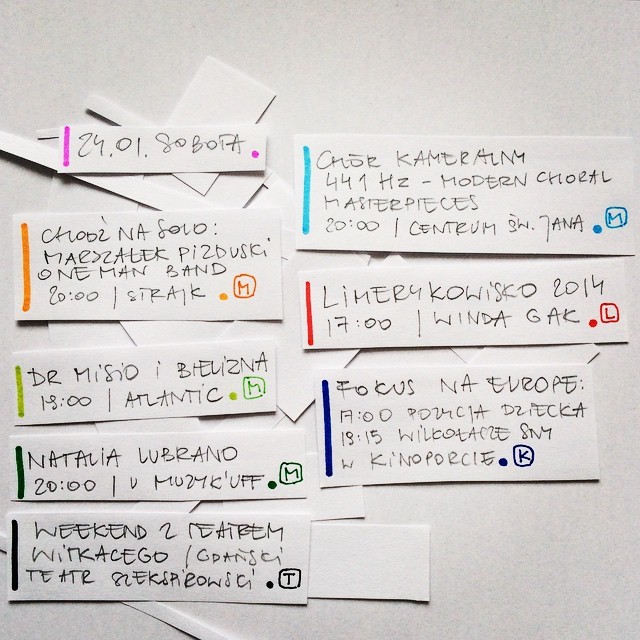 24.01. SOBOTA.
CHODŹ NA SOLO:
MARSZAŁEK PIZDUSKI
ONE MAN BAND
20:00 | STRAJK . M
DR MISIO I BIELIZNA
19:00 | ATLANTIC. M
NATALIA LUBRANO
20:00 | U MUZYK'UFF. M
WEEKEND Z TEATREM
WITKACEGO / GDAŃSKI
TEATR SZEKSPIROWSKI . T
CHÓR KAMERALNY
441 HZ - MODERN CHORAL
MASTERPIECES
20:00 | CENTRUM ŚW. JANA . M
LIMERYKOWISKO 2014
17:00 | WINDA GAK . L
FOKUS NA EUROPE:
17:00 POZYCJA DZIECKA
18:15 WILKOŁACZE SNY
W KINOPORCIE . K